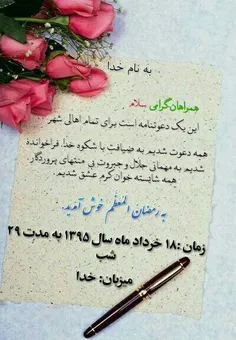 به نام خدا
همراهان گرامی سلام
این یک دعوتنامه است برای تمام اهالی شهر
همه دعوت شدیم به ضیافت با شکوه خدا. فراخوانده
شدیم به مهمانی جلال و جبروت بی منتهای پروردگار.
همه شایسته خوان کرم عشق شدیم.
به رمضان المُعظّم خوش آمدید.
زمان :۱۸ خرداد ماه سال ۱۳۹۵ به مدت ۲۹
شب
میزبان: خدا